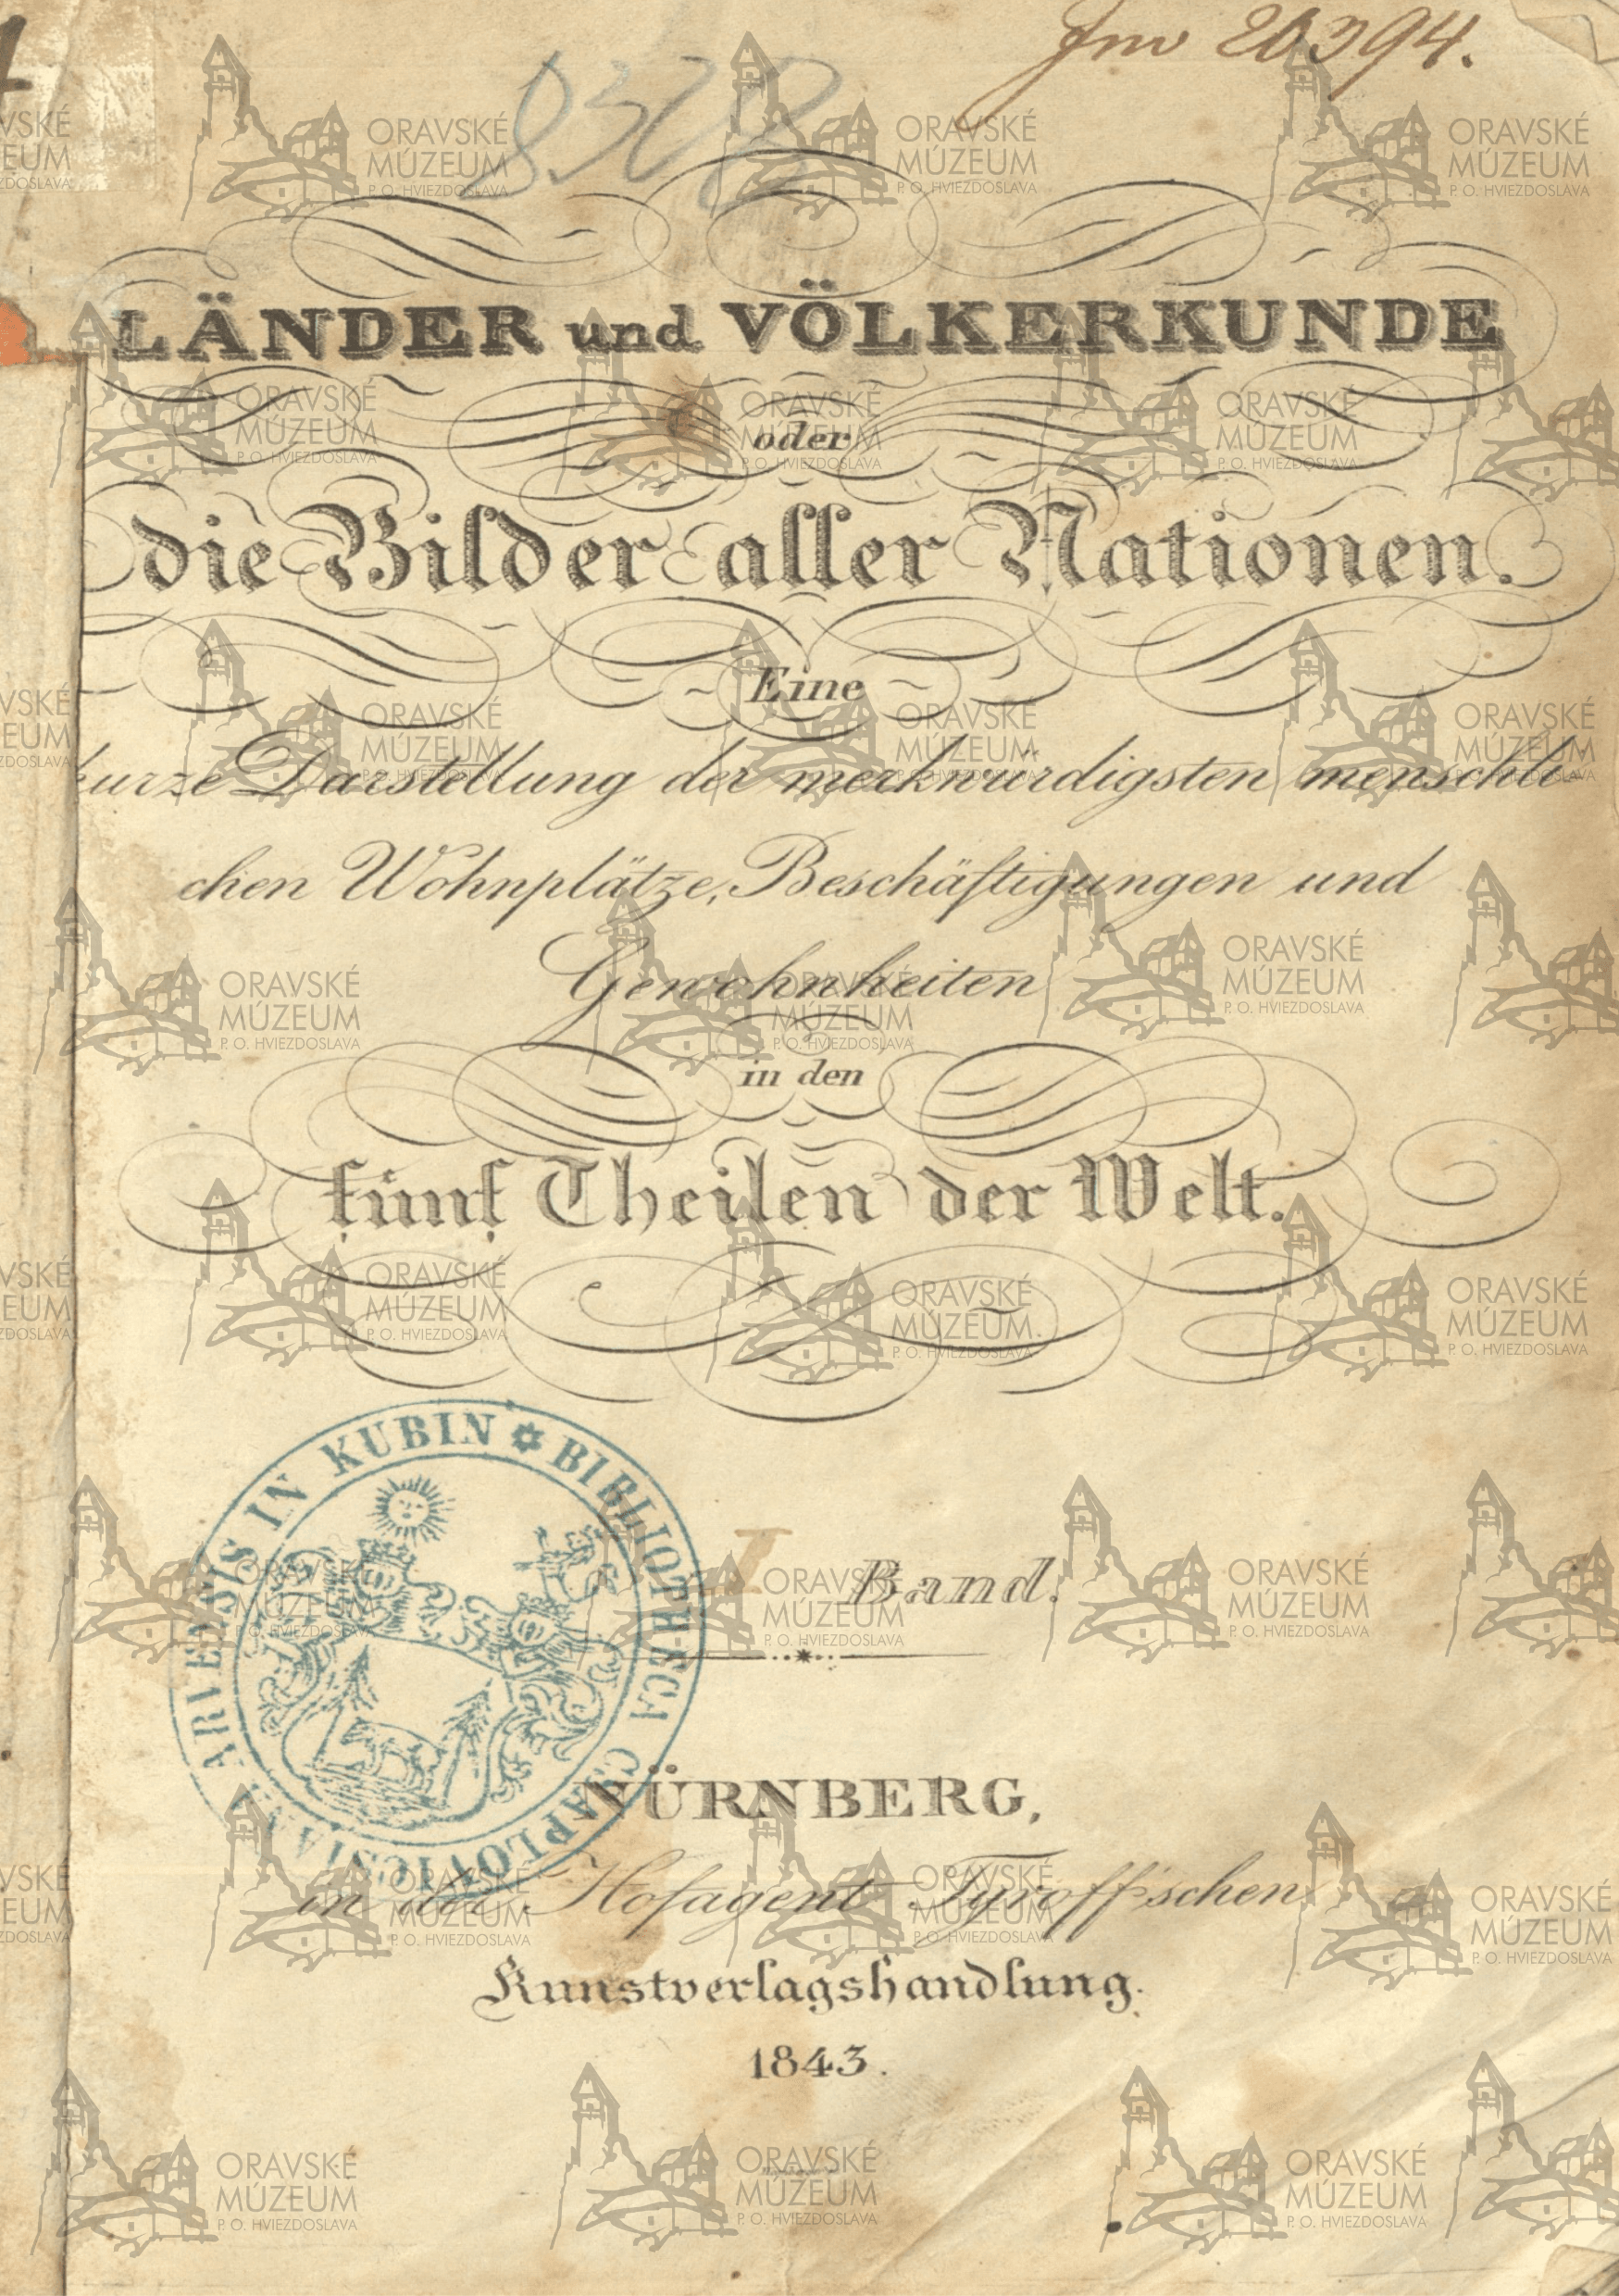 Inv 20394.
LÄNDER und VÖLKERKUNDE
oder
die Bilder aller Nationen.
Eine
kurze Darstellung der merkwürdigsten menschli
chen Wohnplätze, Beschäftigungen und
Gewohnheiten
in den
fünf Theilen der Welt.
BIBLIOTHECA CSAPLOVICSIANA ARVENSIS IN KUBIN
I Band.
NÜRNBERG,
in der Hofagent Tyroff'schen
Kunstverlagshandlung.
1843.
ORAVSKÉ
MÚZEUM
P. O. HVIEZDOSLAVA